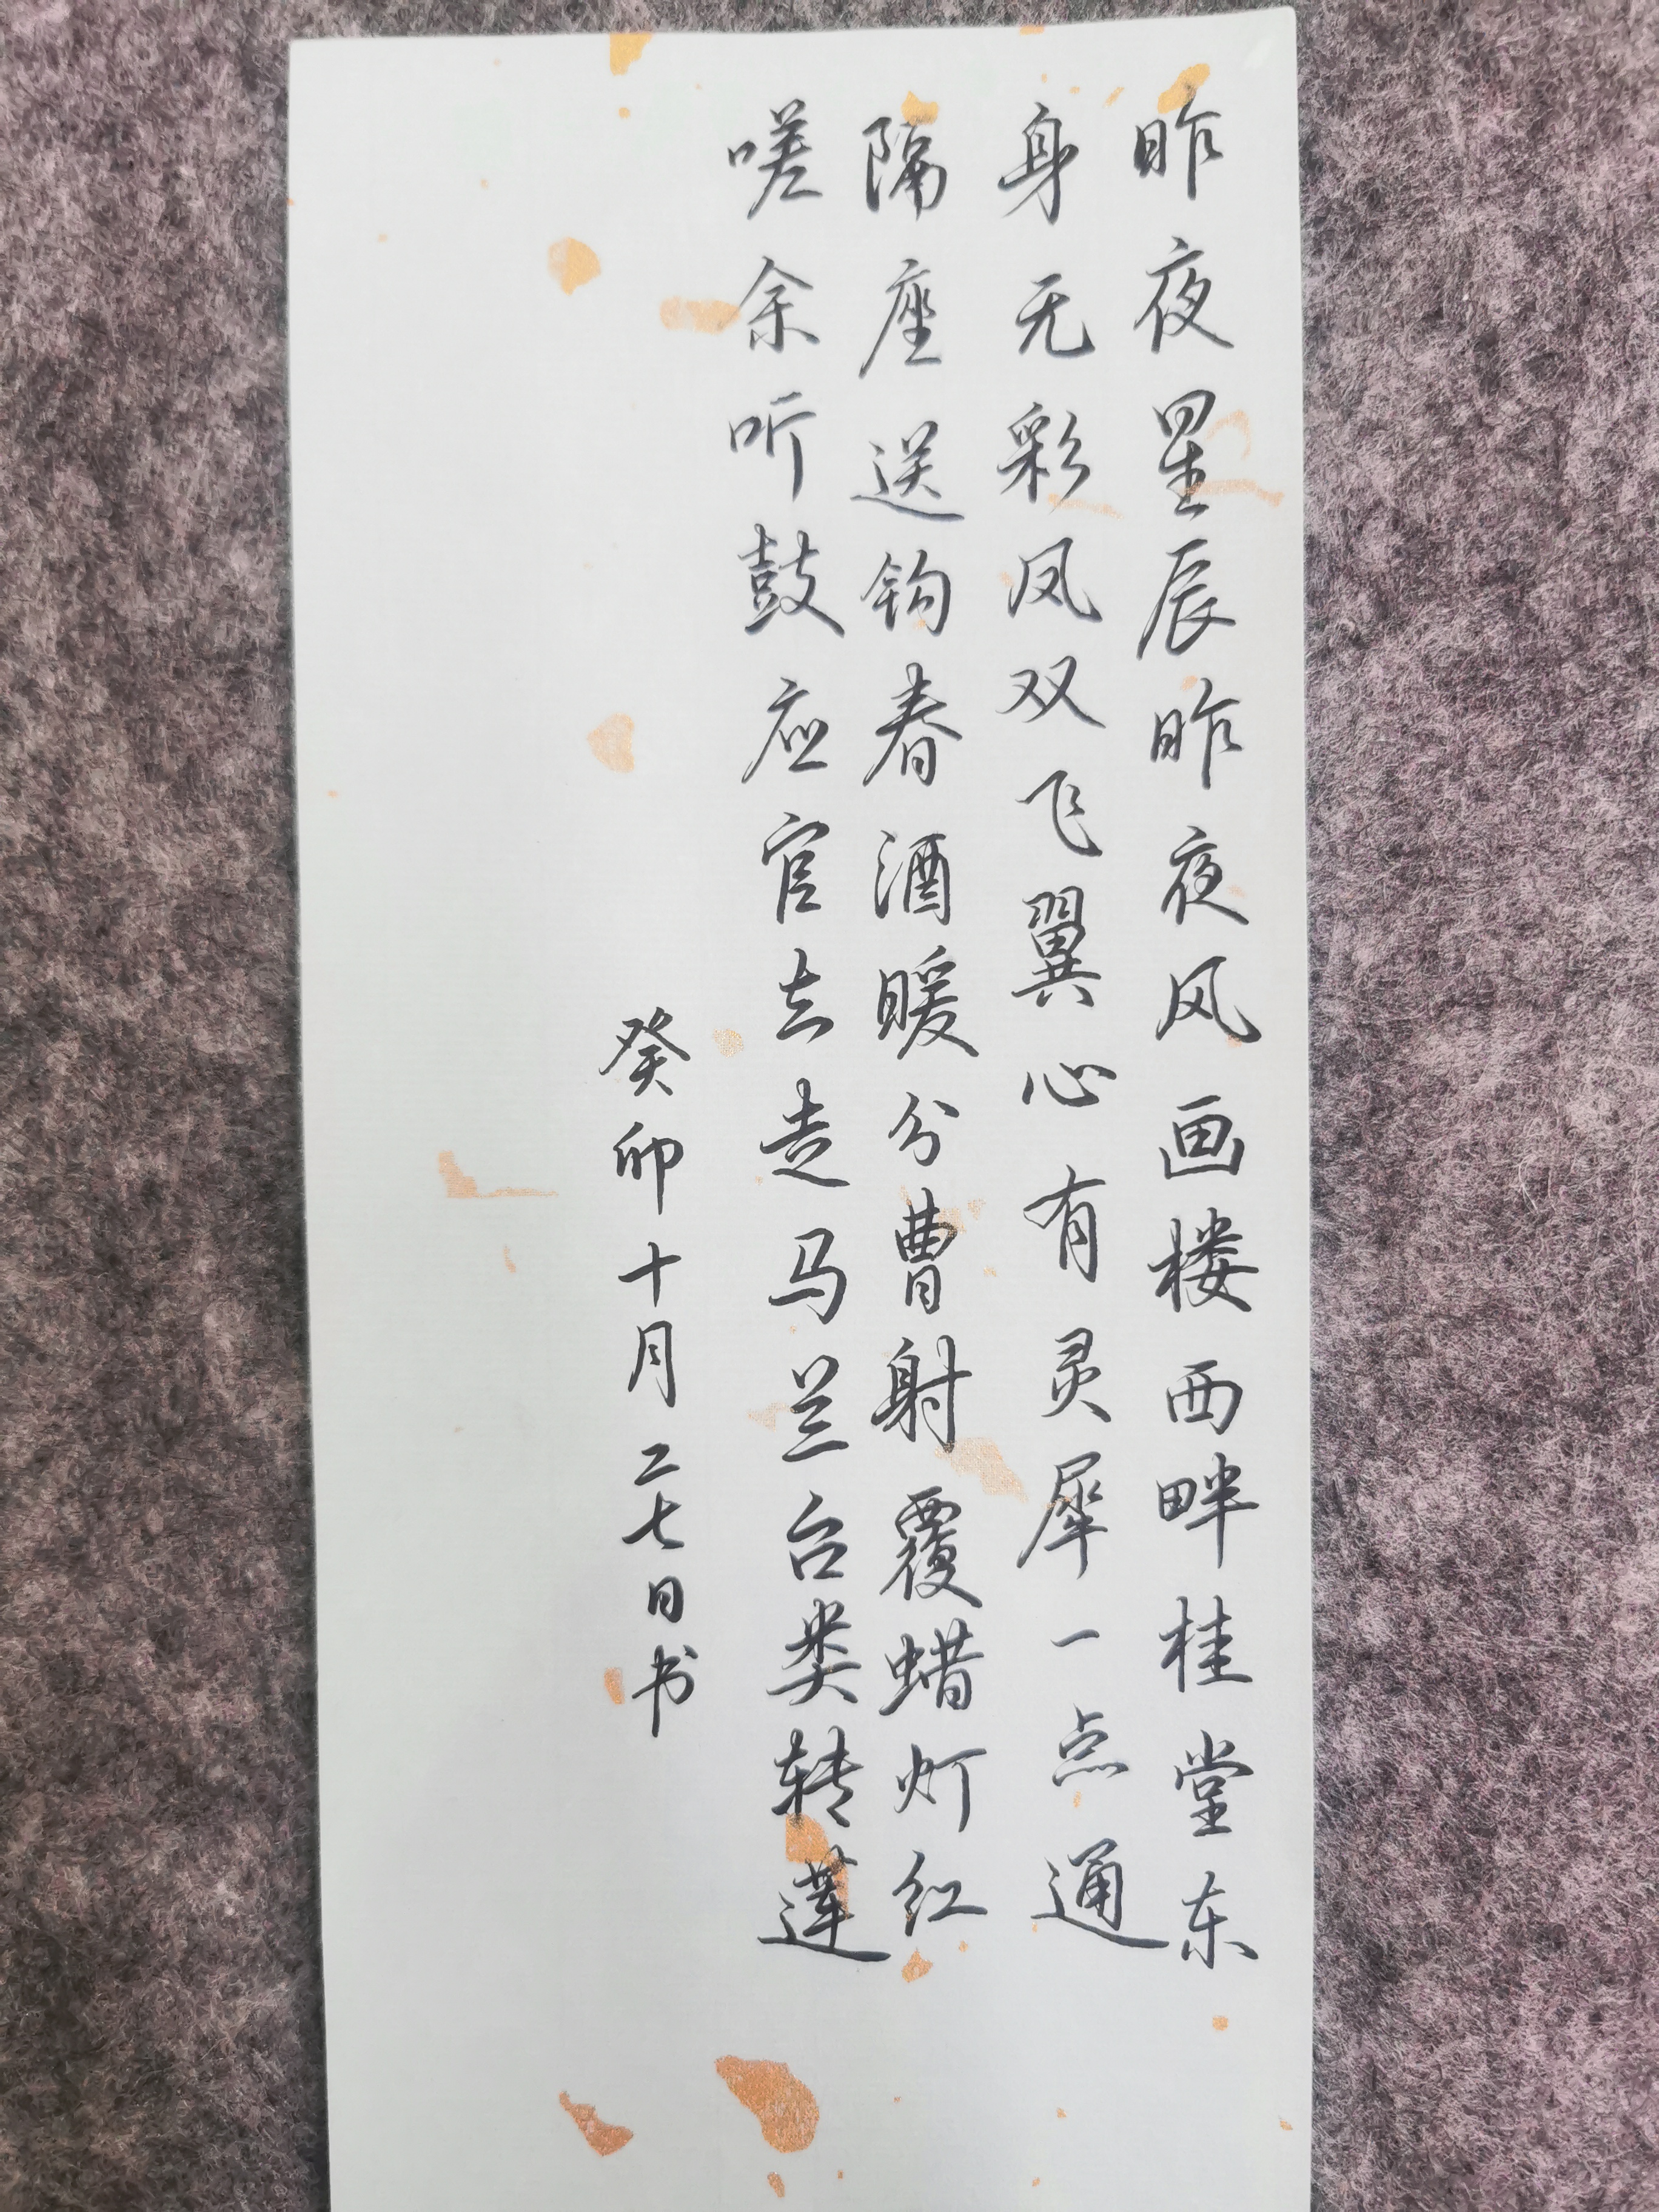 昨夜星辰昨夜风画楼西畔桂堂东
身无彩凤双飞翼心有灵犀一点通
隔座送钩春酒暖分曹射覆蜡灯红
嗟余听鼓应官去走马兰台类转蓬
癸卯十月二七日书